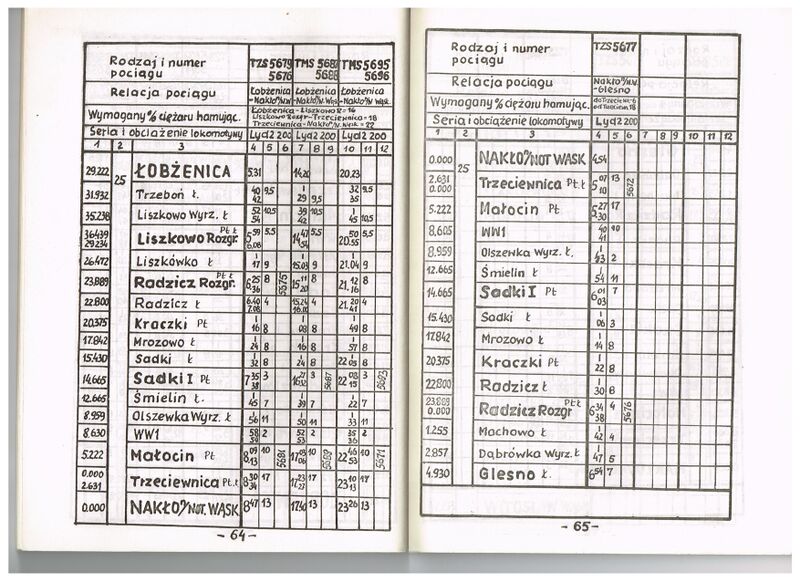 Rodzaj i numer pociągu TZS 5679 5676 TMS 5687 5688 TMS 5695 5696
Relacja pociągu Łobżenica -Nakło/N.W Łobżenica -Nakło/N. Wąs Łobżenica -Nakło/N. Wąsk.
Wymagany % ciężaru hamując. Łobżenica - Liszkowo R = 16
Liszkowo Rozgr - Trzeciewnica - 18
Trzeciewnica - Nakło/N. Wsk = 22
Seria i obciążenie lokomotywy Lyd2 200 Lyd2 200 Lyd2 200
1 2 3 4 5 6 7 8 9 10 11 12
29.222 25 ŁOBŻENICA 5.31 14.20 20.23
31.932 Trzeboń Ł. 40 42 9,5 1 29 9,5 32 35 9,5
35.238 Liszkowo Wyrz. Ł 52 54 10,5 39 42 10,5 1 45 10,5
36.439 29.234 Liszkowo Rozgr. PŁ Ł 5 59 6.08 5,5 14 47 54 5,5 20 50 55 5,5
26.472 Liszkówko Ł. 1 17 9 1 15.03 9 1 21.04 9
23.889 Radzicz Rozgr. PŁ Ł 6 25 36 8 5675 15 11 20 8 21 12 16 8
22.800 Radzicz Ł 6.40 7.08 4 15.24 16.00 4 21.20 41 4
20.375 Kraczki PŁ 1 16 8 1 08 8 1 49 8
17.842 Mrozowo Ł. 1 24 8 1 16 8 1 57 8
15.430 Sadki Ł 1 32 8 1 24 8 1 22 05 8
14.665 Sadki I PŁ 7 35 38 3 16 27 32 3 5687 22 08 15 3 5693
12.665 Śmielin Ł. 1 45 7 1 39 7 1 22 7
8.959 Olszewka Wyrz. Ł 1 56 11 1 50 11 1 33 11
8.630 WW1 58 59 2 52 53 2 35 36 2
5.222 Małocin PŁ 8 09 13 10 5681 17 03 06 10 5689 22 46 53 10 5671
0.000 2.631 Trzeciewnica PŁ.Ł 8 30 34 17 17 23 27 17 23 10 13 17
0.000 NAKŁO/NOT. WĄSK 8 47 13 17 40 13 23 26 13
- 64 -
Rodzaj i numer pociągu TZS 5677
Relacja pociągu Nakło/N.W. -Glesno
Wymagany % ciężaru hamując.
Seria i obciążenie lokomotywy Lyd2 200
1 2 3 4 5 6 7 8 9 10 11 12
0.000 25 NAKŁO/NOT WĄSK 4.54
2.631 0.000 Trzeciewnica PŁ.Ł 5 07 10 13 5672
5.222 Małocin PŁ 5 27 30 17
8.605 WW1 40 41 10
8.959 Olszewka Wyrz. Ł. 1 43 2
12.665 Śmielin Ł. 1 54 11
14.665 Sadki I PŁ 6 01 03 7
15.430 Sadki Ł 1 06 3
17.842 Mrozowo Ł 1 14 8
20.375 Kraczki PŁ 1 22 8
22.800 Radzicz Ł 1 30 8
23.889 0.000 Radzicz Rozgr PŁ Ł 6 34 38 4 5676
1.255 Machowo Ł 1 42 4
2.857 Dąbrówka Wyrz. Ł 1 47 5
4.930 Glesno Ł. 6 54 7
- 65 -